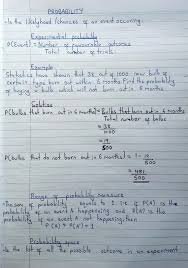 PROBABILITY
- Is the likelyhood /chances of an event occuring.
Experimental probability
P(Event) = Number of favourable outcome
Total number of trials
Example
Statistics have shown that 38 out of 1000 new bulbs of
certain type burn out within 6 months. Find the probability
of buying a bulb which will not burn out in 6 months
Solution
P(bulbs that burn out in 6 months) = Bulbs that burn out in 6 months
Total number of bulbs
= 38
1000
= 19
500
P(bulbs that do not burn out in 6 months) = 1 - 19
500
= 481
500
Range of probability Measure
The sum of probability equals to 1 i.e if P(A) is the
probability of an event A happening and P(A') is the
probability of an event A not happening, then
P(A) + P(A') = 1
Probability space
- is the list of all the possible outcome in an experiment